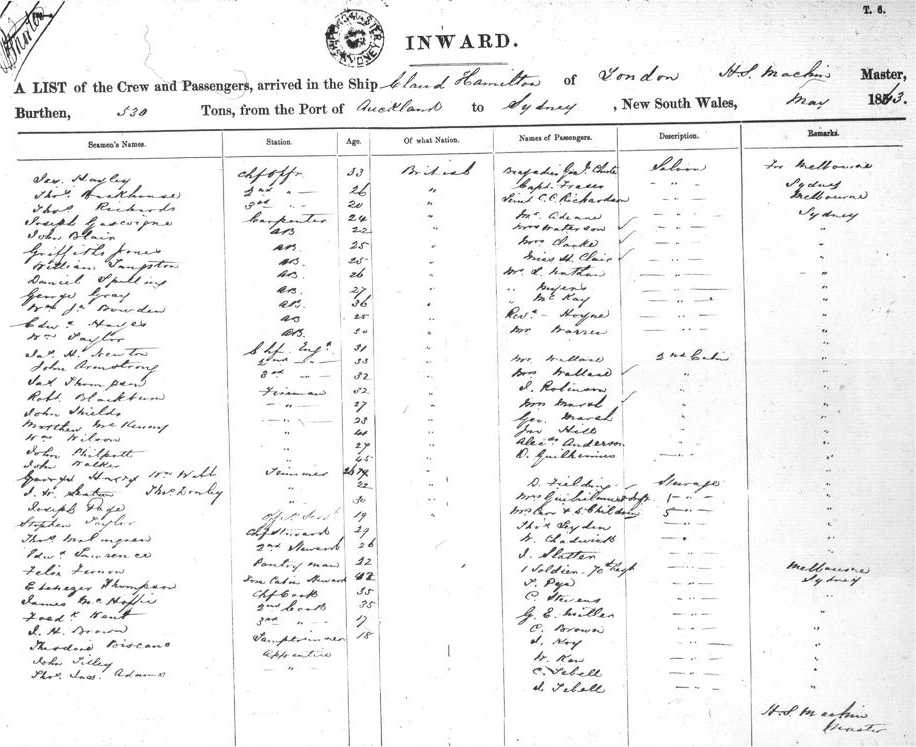 T. 6.
INWARD.
A LIST of the Crew and Passengers, arrived in the Ship Claud Hamilton of London H.S. Machin Master,
Burthen, 530 Tons, from the Port of Auckland to Sydney, New South Wales, May 1863.
Seamen's Names. Station. Age. Of what Nation. Names of Passengers. Description. Remarks.
Jas. Hayley Chf Offr 33 British Saloon For Melbourne
Thos. Backhouse 2nd " 26 " Capt. Fraser " Sydney
Thos. Richards 3rd " 20 " Lieut C.C. Richardson " Melbourne
Joseph Gascoigne Carpenter 24 " " Sydney
John Blair AB 22 " Mrs Waterson " "
Griffiths Jones AB. 25 " Mrs Clarke " "
William AB. 25 " Miss H. Clair " "
Daniel AB. 26 " Mr. L. Nathan " "
George Gray AB. 27 " " Myers " "
Wm. Js. Bowden AB. 36 " " McKay " "
Edwd. Hayes AB 25 " Revd. Hoyne " "
Wm Taylor AB. 30 " Mr Warren " "
Jas. H. Newton Chf. Engr. 31 "
John Armstrong 2nd " 33 " Mr. Wallace 2nd Cabin "
Jas Thompson 3rd " 32 " Mrs Wallace " "
Robt Blackburn Fireman 32 " J. Robinson " "
John Shields " 27 " Mrs Marsh " "
Matthew McKenny " 23 " Geo. Marsh " "
Wm Wilson " " Jno Hill " "
John Philpott " 27 " Alexdr Anderson " "
John Walker " 45 " D. "
George Harry Wm Webb Trimmer " D. Fielding Steerage "
J. W. Seaton Thos Donley " 22 " Mrs "
Joseph Page " 30 " Mrs & 5 Children 5 "
Stephen Taylor 19 " Thos Lyden " "
Thos. Chf Steward 29 W. Chadwick " "
Edwd. Lawrence 2nd Steward 26 J. Slatter "
Felix Vernon Pantryman 22 1 Soldier. 70th Regt Melbourne
Ebenezer Thompson Fore Cabin Steward T. Pye " Sydney
James McHaffie Chf Cook 35 C. Stevens "
Fredk. Kent 2nd Cook 35 G. E. Miller " "
J. H. Brown 3rd " 17 C. Brown " "
Theodore Biscano Lamptrimmer 18 J. Hoy " "
John Tilley Apprentice W. Kerr " "
Thos. Jas. Adams " C. Tebell " "
J. Tebell " "
H.S. Machin
Master